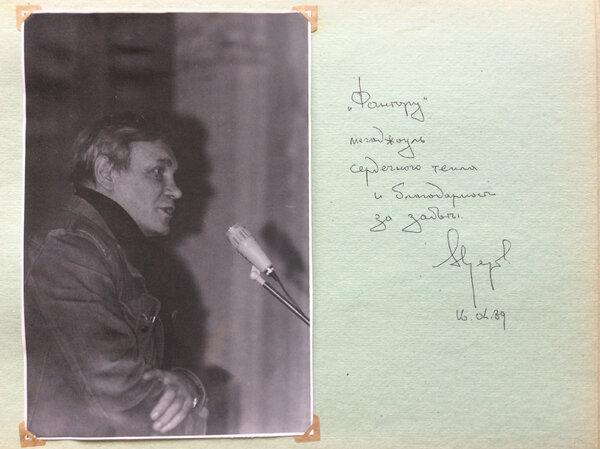 „Фантору"
мегаджоуль
сердечного тепла
и благодарности
за заботы.
16.04.89